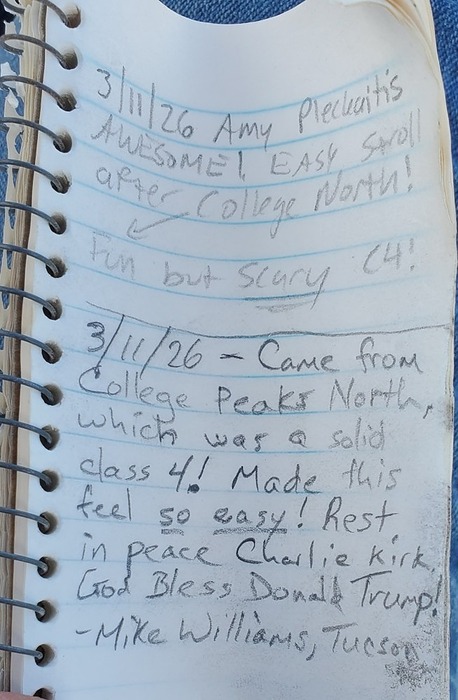 3/11/26 Amy Pleckaitis
AWESOME! EASY stroll
after College North!
Fun but scary C4!
3/11/26 - Came from
College Peaks North,
which was a solid
class 4! Made this
feel so easy! Rest
in peace Charlie Kirk.
God Bless Donald Trump!
-Mike Williams, Tucson